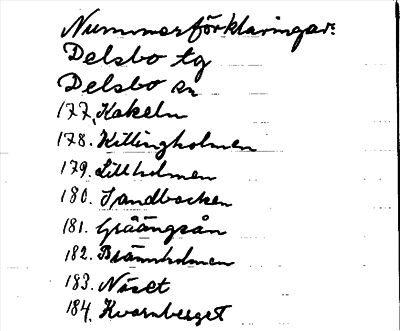 Nummerförklaringar:
Delsbo tg
Delsbo sn
177. Kakeln
178. Killingholmen
179. Lillholmen
180. Sandbacken
181. Gråängsån
182. Brännholmen
183. Näset
184. Kvarnberget